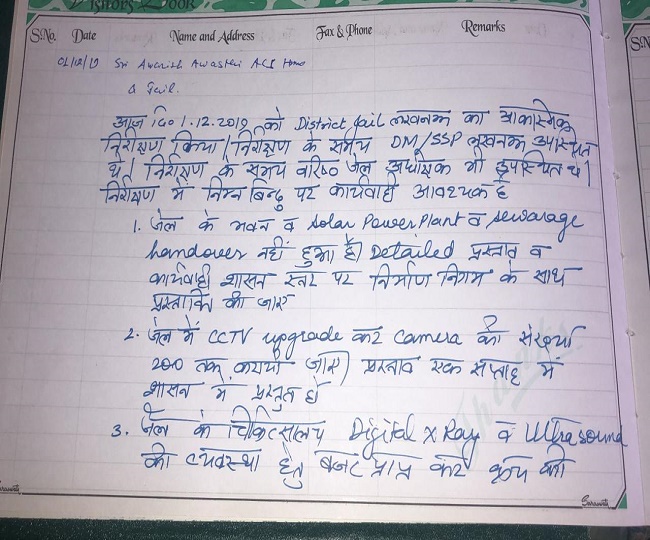 VISITORS BOOK
S.No. Date Name and Address Fax & Phone Remarks
S.N
01/12/19 Sri Awanish Awasthi ACS Home
& Jail.
आज दि० 1.12.2019 को District Jail लखनऊ का आकस्मिक
निरीक्षण किया। निरीक्षण के समय DM/SSP लखनऊ उपस्थित
थे। निरीक्षण के समय वरिष्ठ जेल अधीक्षक भी उपस्थित थे।
निरीक्षण में निम्न बिन्दु पर कार्यवाही आवश्यक है
1. जेल के भवन व Solar Power Plant व Sewarage
handover नहीं हुआ है। Detailed प्रस्ताव व
कार्यवाही शासन स्तर पर निर्माण निगम के साथ
प्रस्तावित की जाए
2. जेल में CCTV upgrade कर Camera की संख्या
200 तक करायी जाए। प्रस्ताव एक सप्ताह में
शासन में प्रस्तुत हो
3. जेल के चिकित्सालय Digital X Ray व Ultrasound
की व्यवस्था हेतु बजट प्राप्त कर क्रय की
Saraswati